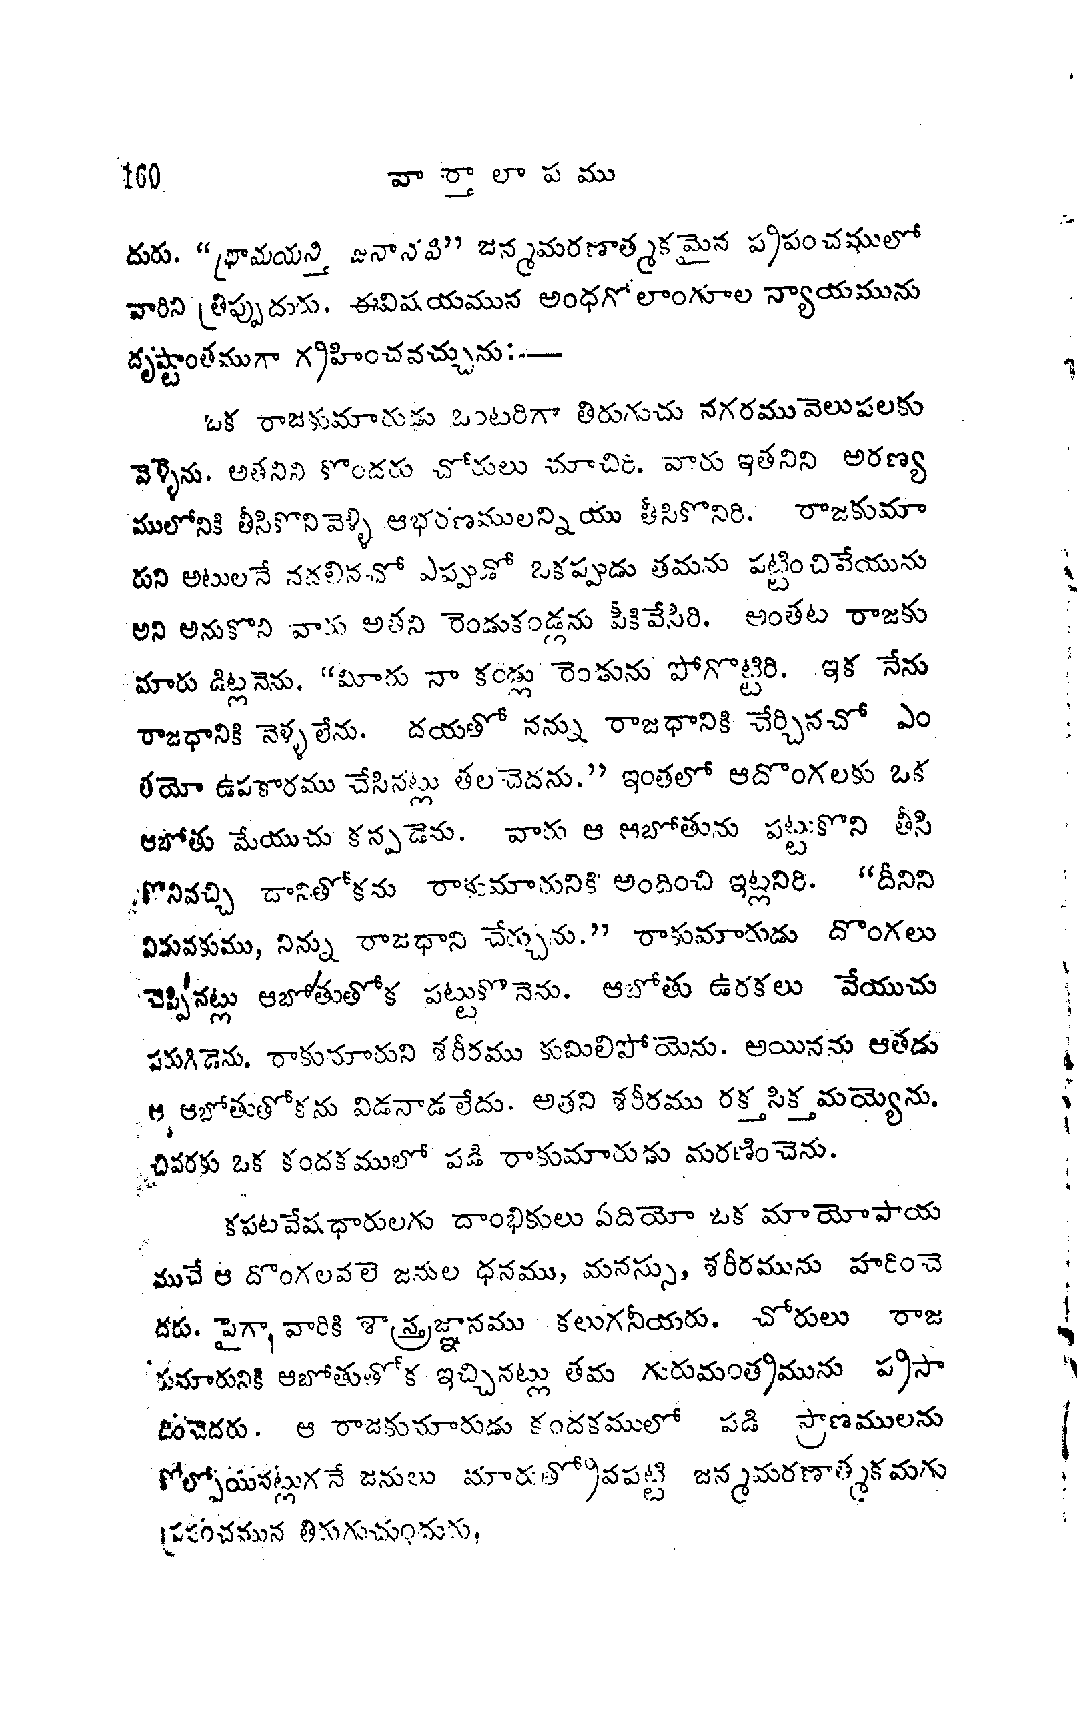 160 వార్తాలాపము
దురు. “భ్రామయన్తి జనానపి” జన్మమరణాత్మకమైన ప్రపంచములో
వారిని త్రిప్పుదురు. ఈవిషయమున అంధగోలాంగూల న్యాయమును
దృష్టాంతముగా గ్రహించవచ్చును:—
ఒక రాజకుమారుడు ఒంటరిగా తిరుగుచు నగరమువెలుపలకు
వెళ్ళెను. అతనిని కొందరు చోరులు చూచిరి. వారు ఇతనిని అరణ్య
ములోనికి తీసికొనివెళ్ళి ఆభరణములన్నియు తీసికొనిరి. రాజకుమా
రుని అటులనే వదలినచో ఎప్పుడో ఒకప్పుడు తమను పట్టించివేయును
అని అనుకొని వారు అతని రెండుకండ్లను పీకివేసిరి. అంతట రాజకు
మారు డిట్లనెను. “మీరు నా కండ్లు రెండును పోగొట్టిరి. ఇక నేను
రాజధానికి వెళ్ళలేను. దయతో నన్ను రాజధానికి చేర్చినచో ఎం
తయో ఉపకారము చేసినట్లు తలచెదను.” ఇంతలో ఆదొంగలకు ఒక
ఆబోతు మేయుచు కన్పడెను. వారు ఆ ఆబోతును పట్టుకొని తీసి
కొనివచ్చి దానితోకను రాకుమారునికి అందించి ఇట్లనిరి. “దీనిని
విడువకుము, నిన్ను రాజధాని చేర్చును.” రాకుమారుడు దొంగలు
చెప్పినట్లు ఆబోతుతోక పట్టుకొనెను. ఆబోతు ఉరకలు వేయుచు
పరుగిడెను. రాకుమారుని శరీరము కుమిలిపోయెను. అయినను ఆతడు
ఆ ఆబోతుతోకను విడనాడలేదు. అతని శరీరము రక్తసిక్తమయ్యెను.
చివరకు ఒక కందకములో పడి రాకుమారుడు మరణించెను.
కపటవేషధారులగు దాంభికులు ఏదియో ఒక మాయోపాయ
ముచే ఆ దొంగలవలె జనుల ధనము, మనస్సు, శరీరమును హరించె
దరు. పైగా వారికి శాస్త్రజ్ఞానము కలుగనీయరు. చోరులు రాజ
కుమారునికి ఆబోతుతోక ఇచ్చినట్లు తమ గురుమంత్రమును ప్రసా
దించెదరు. ఆ రాజకుమారుడు కందకములో పడి ప్రాణములను
కోల్పోయినట్లుగనే జనులు మారుత్రోవపట్టి జన్మమరణాత్మకమగు
ప్రపంచమున తిరుగుచుందురు.